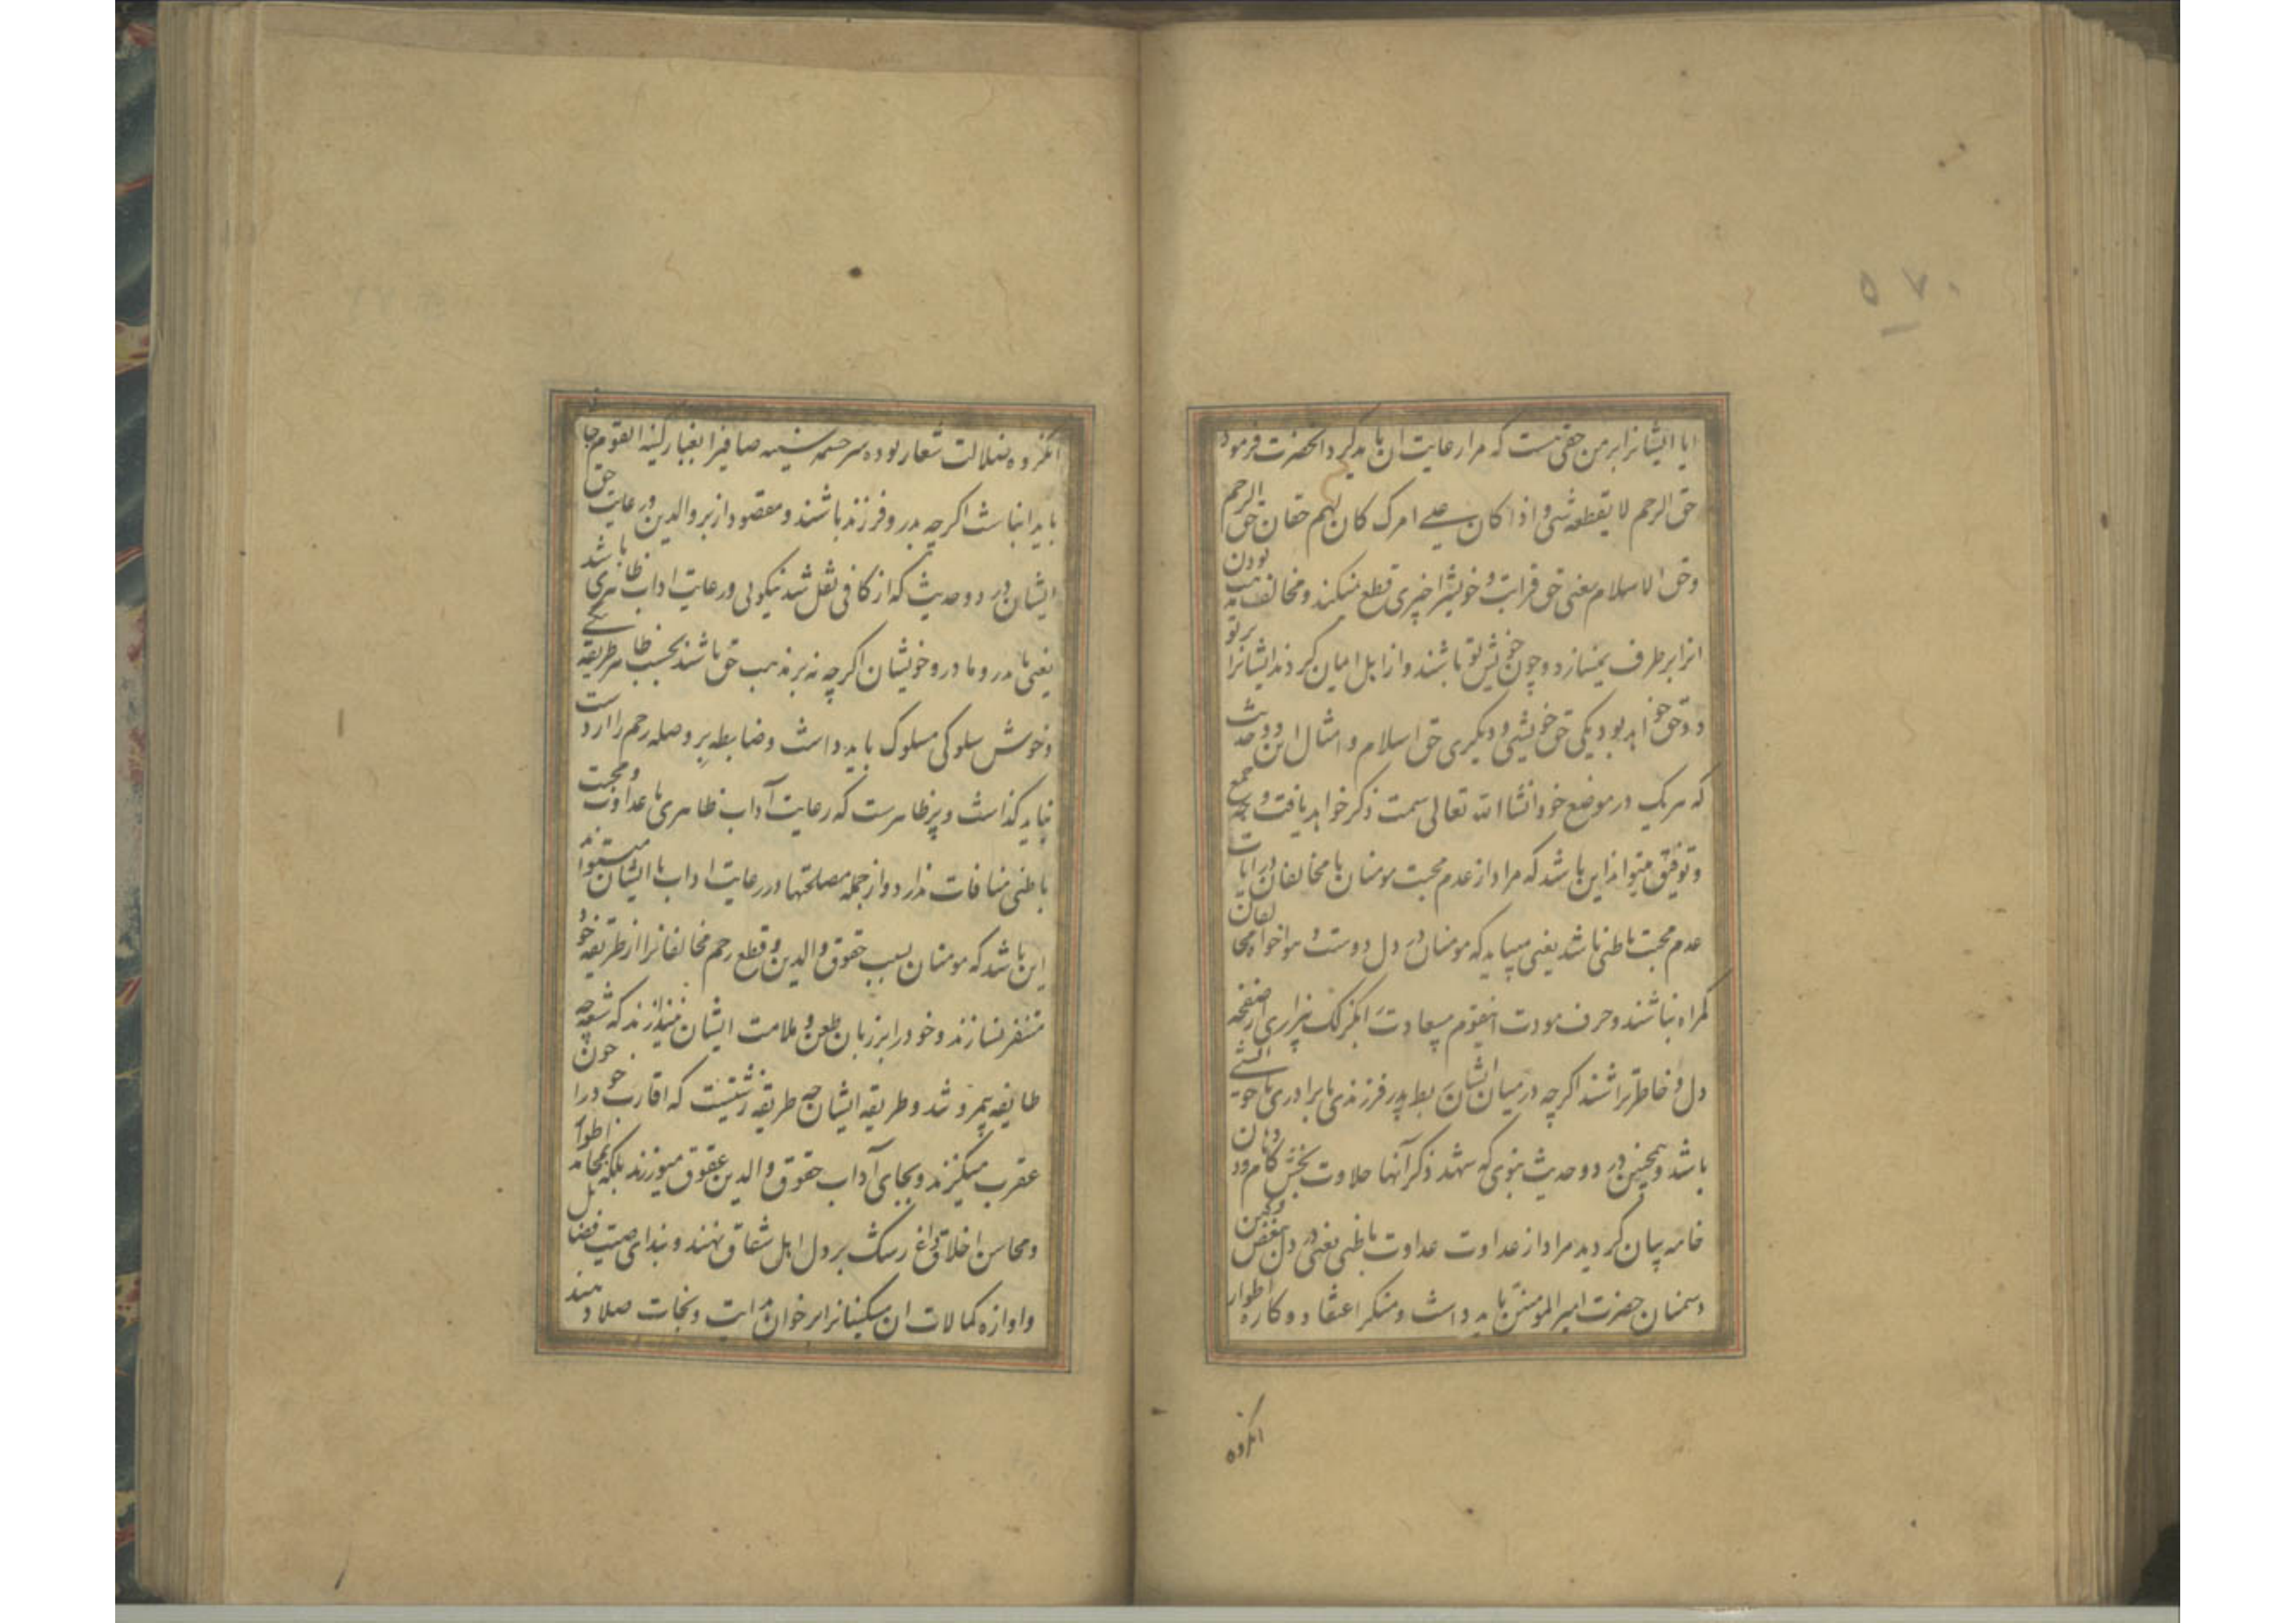 ۵۷۰
ایا ایشانرا بر من حقی هست که مرا رعایت ان باید کرد انحضرت فرمود
حق الرحم لا یقطعه شی و اذا کان علی امرک کان لهم حقان حق الرحم
وحق الاسلام یعنی حق قرابت و خویشی را چیزی قطع نمیکند و مخالف مذهب بودن
انرا بر طرف نمیسازد و چون خویش تو باشند و از اهل ایمان کردند ایشانرا بر تو
دو حق خواهد بود یکی حق خویشی و دیگری حق اسلام و امثال این دو حدیث
که هریک در موضع خود انشا الله تعالی سمت ذکر خواهد یافت وجه جمع
و توفیق میتواند این باشد که مراد از عدم محبت مومنان با مخالفان در ایات
عدم محبت باطنی باشد یعنی میباید که مومنان در دل دوست و هواخواه مخالفان
کمراه نباشند و حرف مودت انقوم بیسعادت بکزلک بیزاری از صفحه
دل و خاطر تراشند اکرچه در میان ایشان ربط پدر فرزندی یا برادری یا خویشی
باشد و همچنین در دو حدیث نبوی که شهد ذکر آنها حلاوت بخش کام و دهان
خامه بیان کردید مراد از عداوت عداوت باطنی یعنی در دل بغض و کین
دشمنان حضرت امیر المومنین باید داشت و منکر اعتقاد و کاره اطوار
انکروه
انکروه ضلالت شعار بوده سرچشمه سینه صافیرا بغبار کینه انقوم
باید انباشت اکرچه پدر و فرزند باشند و مقصود از بر والدین و رعایت حق
ایشان در دو حدیث که از کافی نقل شد نیکوئی و رعایت اداب ظاهری باشد
یعنی با پدر و مادر و خویشان اکرچه نه بر مذهب حق باشند بحسب ظاهر طریقه
و خوش سلوکی مسلوک باید داشت و ضابطه بر و صله رحم را از دست
نباید کذاشت و پر ظاهرست که رعایت آداب ظاهری با عداوت و محبت
باطنی منافات ندارد و از جمله مصلحتها در رعایت اداب با ایشان میتواند
این باشد که مومنان بسبب حقوق والدین و قطع رحم مخالفانرا از طریقه خود
متنفر نسازند و خود را بر زبان طعن و ملامت ایشان نیندازند که شیعه چه
طایفه بیمروتند و طریقه ایشان چه طریقه زشتیست که اقارب خود را چون
عقرب میکزند و بجای آداب حقوق والدین عقوق میورزند بلکه بمحامد اطوار
و محاسن اخلاق داغ رشک بر دل اهل شقاق نهند و بندای صیت فضایل
و اوازه کمالات ان مسکینانرا بر خوان هدایت و نجات صلا دهند